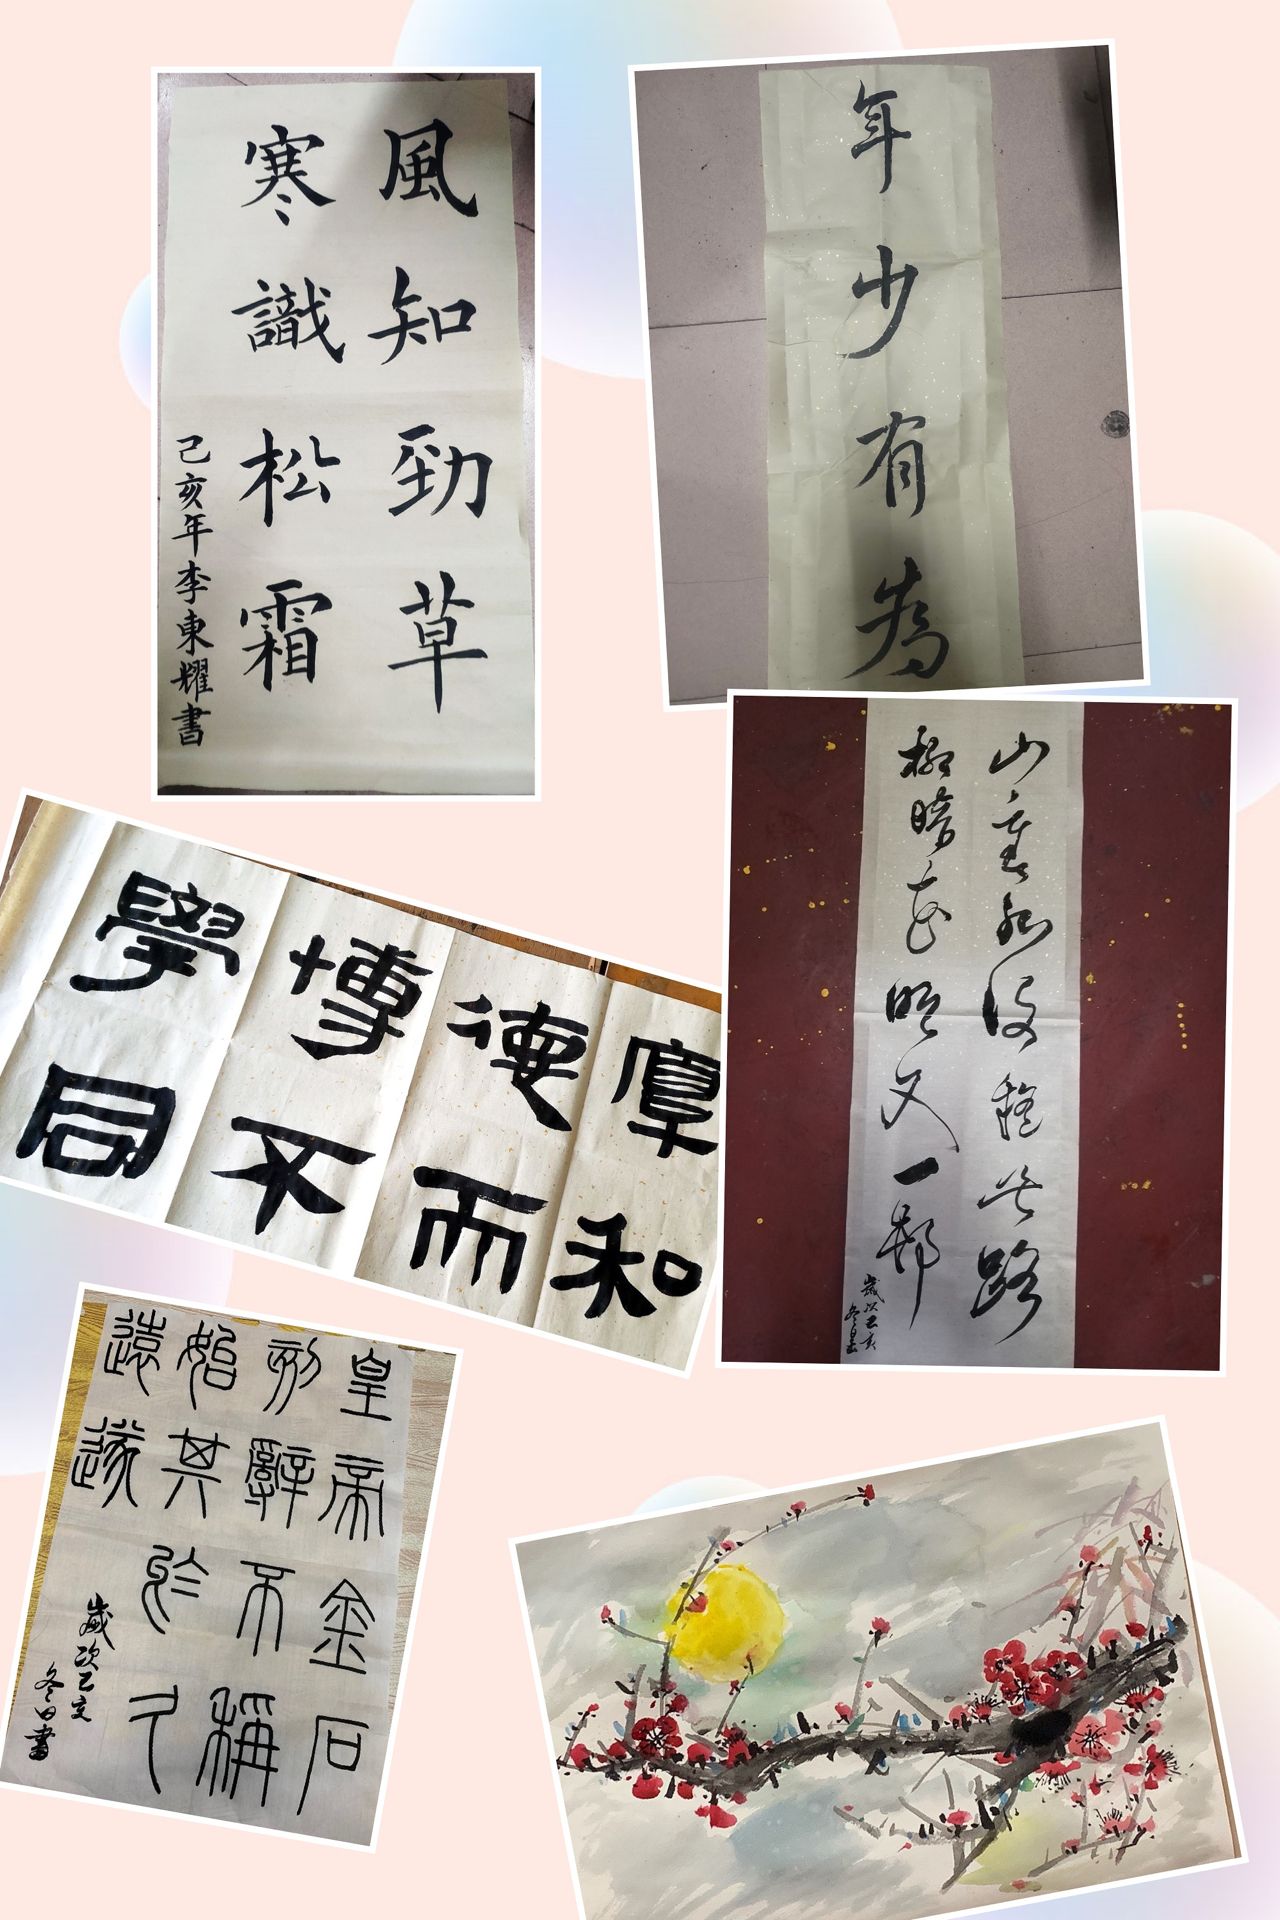 風知勁草
寒識松霜
己亥年李東耀書
年少有為
山重水復疑無路
柳暗花明又一邨
歲次己亥
冬
厚德博學
和而不同
皇帝金石
刻辭不稱
始其於久
遠遂
歲次己亥
冬日書